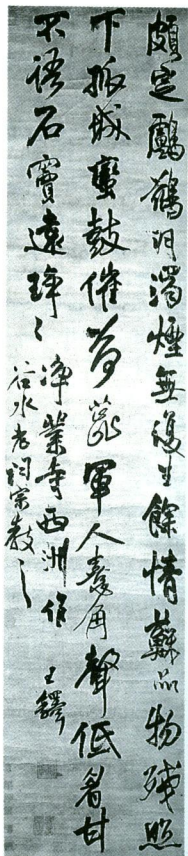 頗定鷗鶴羽濁煙無復生餘情蘇品物殘照
下孤城蠻鼓催蕊軍人角聲低甘
不語石竇遠琤々
淨業寺西洲作
谷水老詞宗教之
王鐸